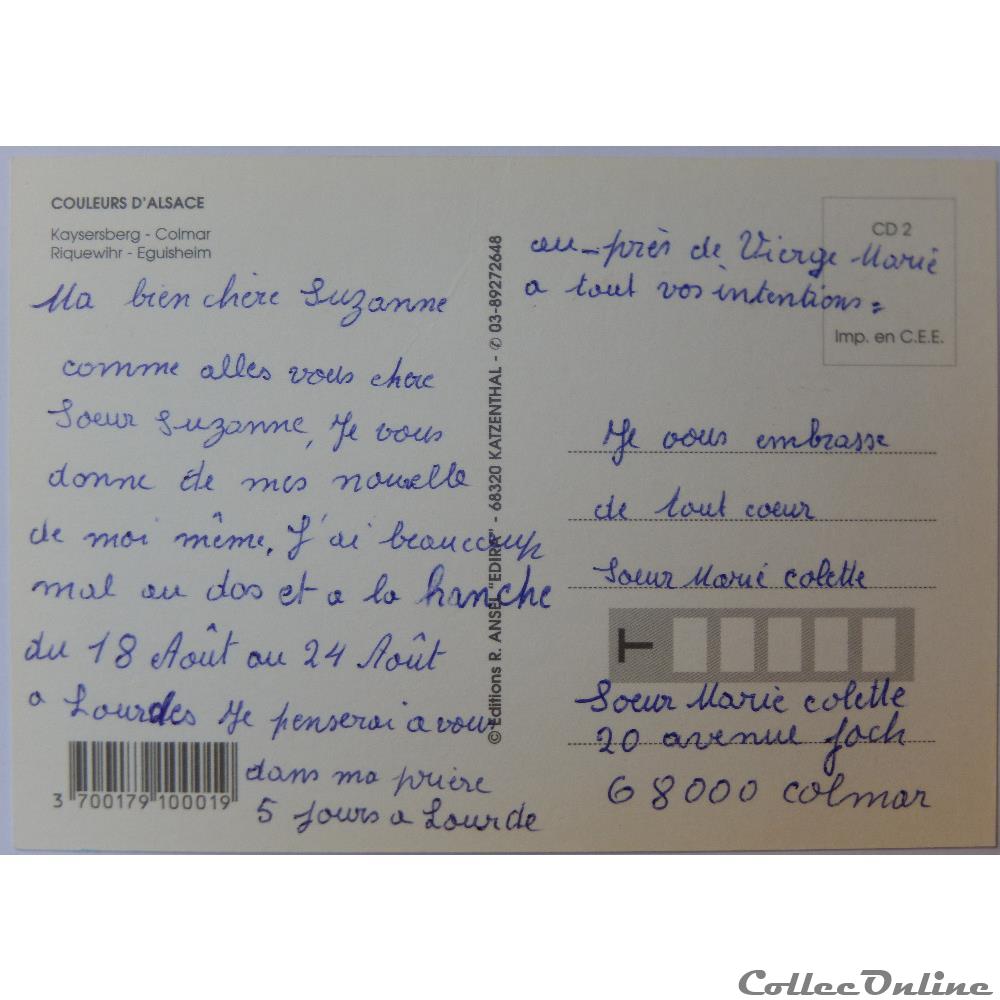 COULEURS D'ALSACE
Kaysersberg - Colmar
Riquewihr - Eguisheim
Ma bien chère Suzanne
comme alles vous chère
Soeur Suzanne, Je vous
donne de mes nouvelle
de moi même, J'ai beaucoup
mal au dos et a la hanche
du 18 Août au 24 Août
a Lourdes Je penserai a vous
dans ma prière
5 jours a Lourde
3 700179 100019
© Editions R. ANSEL "EDIRA" - 68320 KATZENTHAL - ✆ 03-89272648
CD 2
Imp. en C.E.E.
au-près de Vierge Marie
a tout vos intentions =
Je vous embrasse
de tout coeur
Soeur Marié colette
T
Soeur Marie colette
20 avenue foch
68000 colmar
CollecOnline